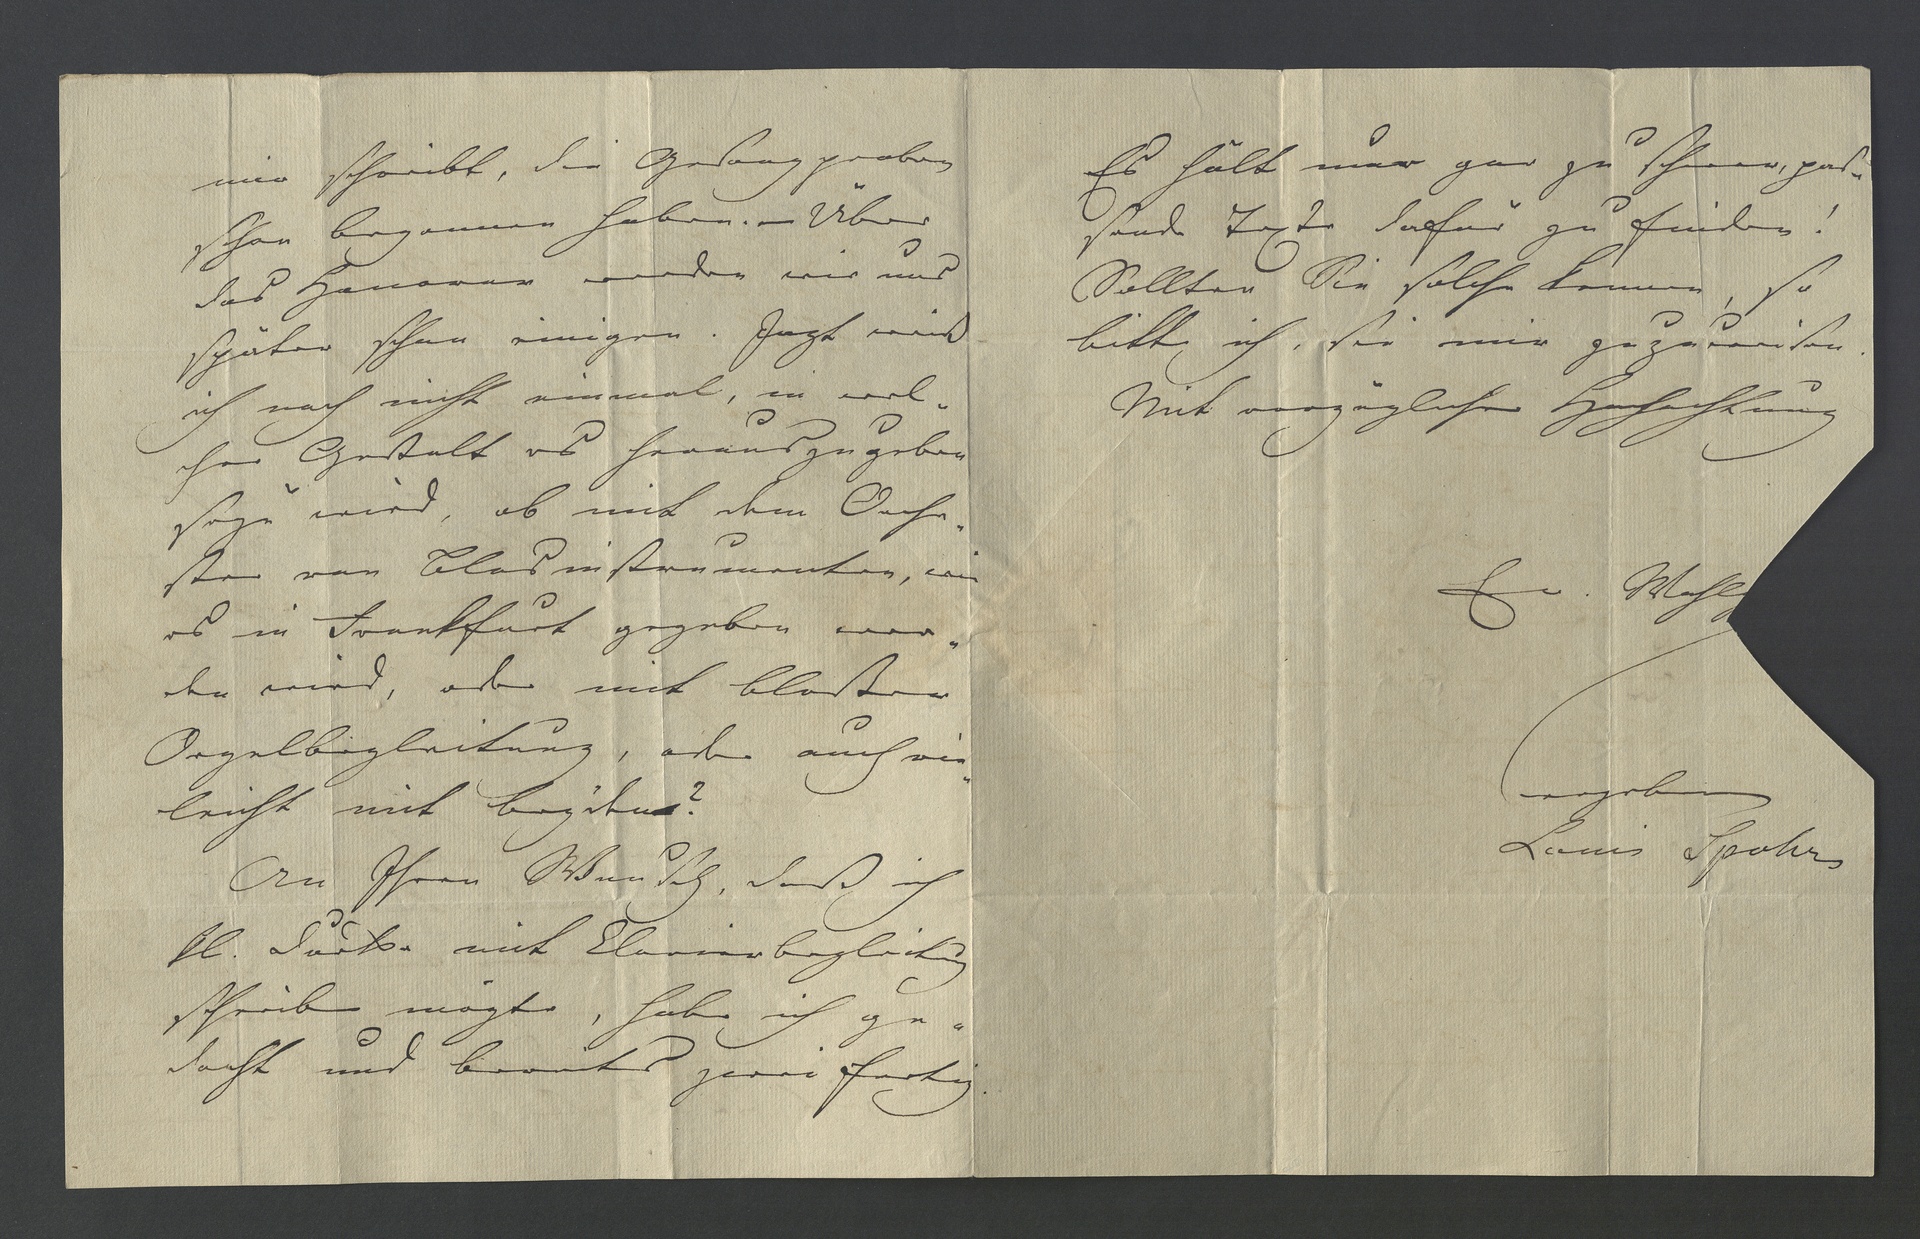 mir schreibt, die Gesangproben
schon begonnen haben. – Über
das Honorar werden wir uns
später schon einigen. Jezt weiß
ich noch nicht einmal, in wel-
cher Gestalt es herauszugeben
seyn wird, ob mit dem Orche-
ster von Blasinstrumenten, wie
es in Frankfurt gegeben wer-
den wird, oder mit bloßer
Orgelbegleitung, oder auch viel-
leicht mit beyden?
An Ihren Wunsch, daß ich
kl. Duette mit Clavierbegleitung
schreiben mögte, habe ich ge-
dacht und bereits zwei fertig.
Es hält nur gar zu schwer, pas-
sende Texte dafür zu finden!
Sollten Sie solche kennen, so
bitte ich, sie mir zuzuweisen.
Mit vorzüglicher Hochachtung
Ew. Wohlg
ergebener
Louis Spohr